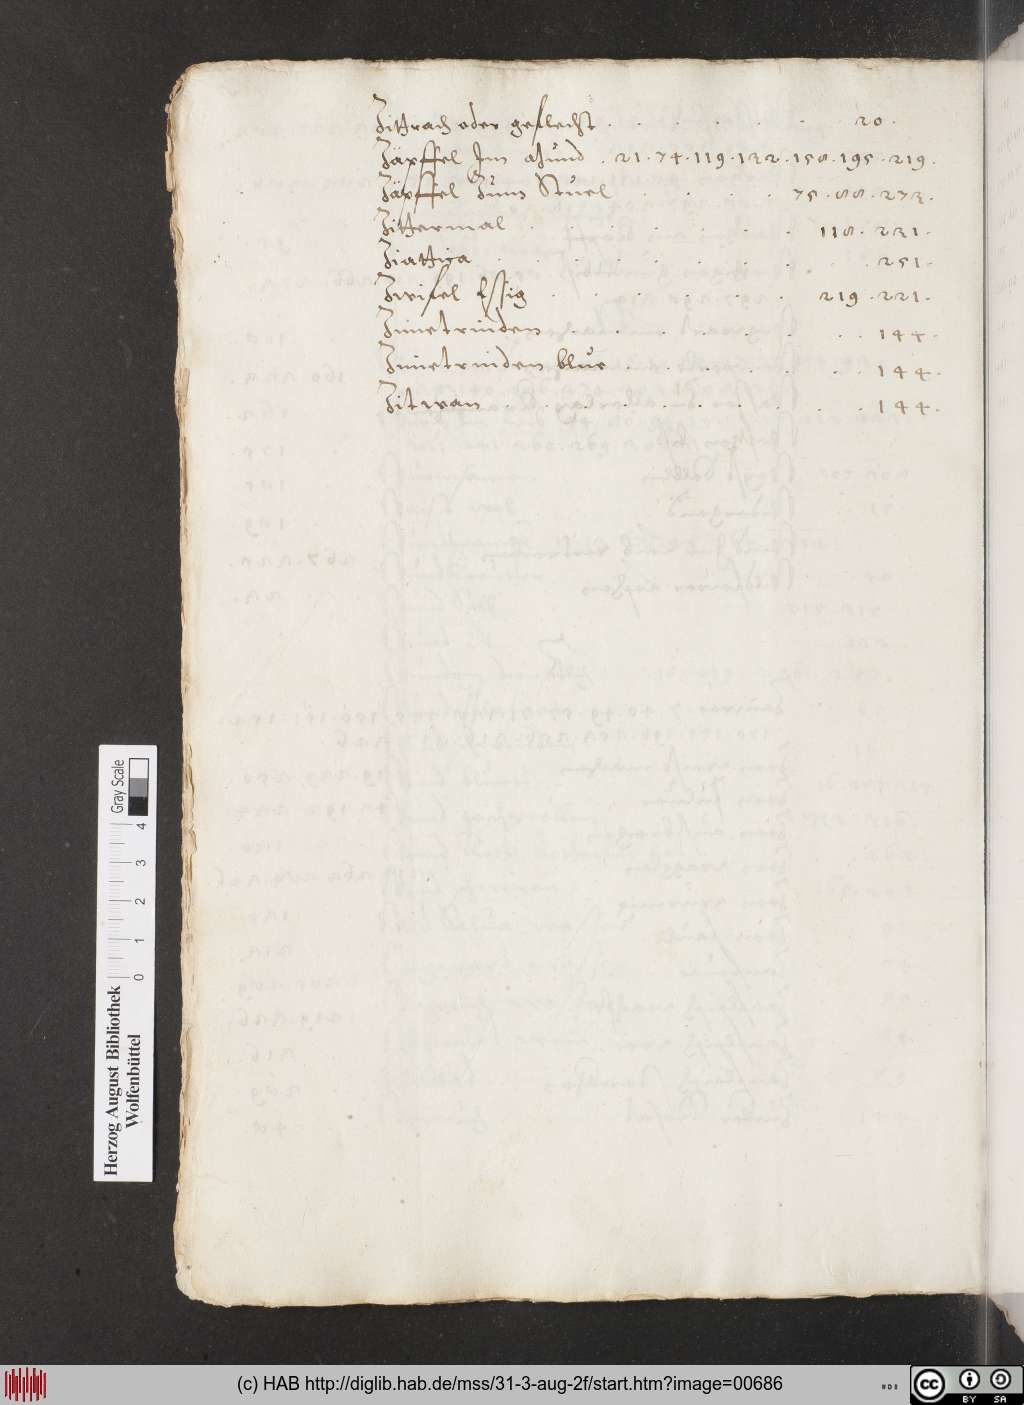 Zittrach oder geflecht . . . . . . 20 .
Zäpffel Im Mund . 21 . 74 . 119 . 132 . 158 . 195 . 219 .
Zäpffel Zum Stuel . . . . 75 . 88 . 273 .
Zittermal . . . . . . . 118 . 231 .
Ziattica . . . . . . . . . 251 .
Zwifel Essig . . . . . . 219 . 221 .
Zimetrinden . . . . . . . 144 .
Zimetrinden blue . . . . . . 144 .
Zitwan . . . . . . . . . 144 .
Gray Scale
0 1 2 3 4
Herzog August Bibliothek
Wolfenbüttel
(c) HAB http://diglib.hab.de/mss/31-3-aug-2f/start.htm?image=00686
cc BY SA